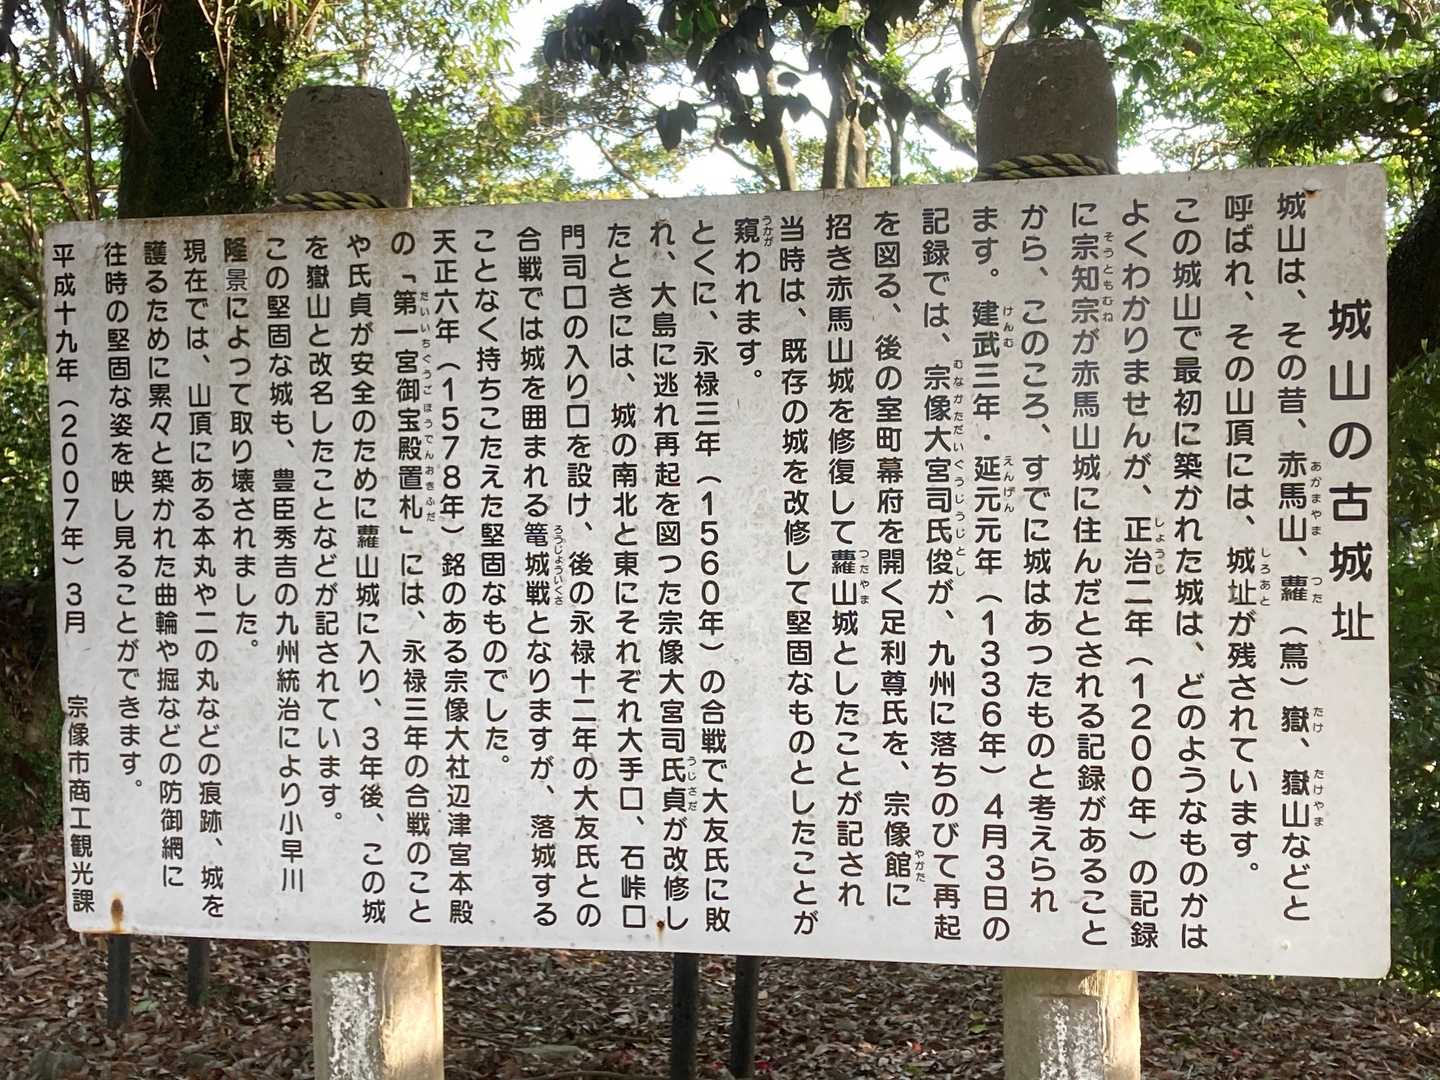 城山の古城址
城山は、その昔、赤馬山、蘿（蔦）嶽、嶽山などと
呼ばれ、その山頂には、城址が残されています。
この城山で最初に築かれた城は、どのようなものかは
よくわかりませんが、正治二年（1200年）の記録
に宗知宗が赤馬山城に住んだとされる記録があること
から、このころ、すでに城はあったものと考えられ
ます。建武三年・延元元年（1336年）4月3日の
記録では、宗像大宮司氏俊が、九州に落ちのびて再起
を図る、後の室町幕府を開く足利尊氏を、宗像館に
招き赤馬山城を修復して蘿山城としたことが記され
当時は、既存の城を改修して堅固なものとしたことが
窺われます。
とくに、永禄三年（1560年）の合戦で大友氏に敗
れ、大島に逃れ再起を図つた宗像大宮司氏貞が改修し
たときには、城の南北と東にそれぞれ大手口、石峠口
門司口の入り口を設け、後の永禄十二年の大友氏との
合戦では城を囲まれる篭城戦となりますが、落城する
ことなく持ちこたえた堅固なものでした。
天正六年（1578年）銘のある宗像大社辺津宮本殿
の「第一宮御宝殿置札」には、永禄三年の合戦のこと
や氏貞が安全のために蘿山城に入り、3年後、この城
を嶽山と改名したことなどが記されています。
この堅固な城も、豊臣秀吉の九州統治により小早川
隆景によって取り壊されました。
現在では、山頂にある本丸や二の丸などの痕跡、城を
護るために累々と築かれた曲輪や堀などの防御網に
往時の堅固な姿を映し見ることができます。
平成十九年（2007年）3月　宗像市商工観光課